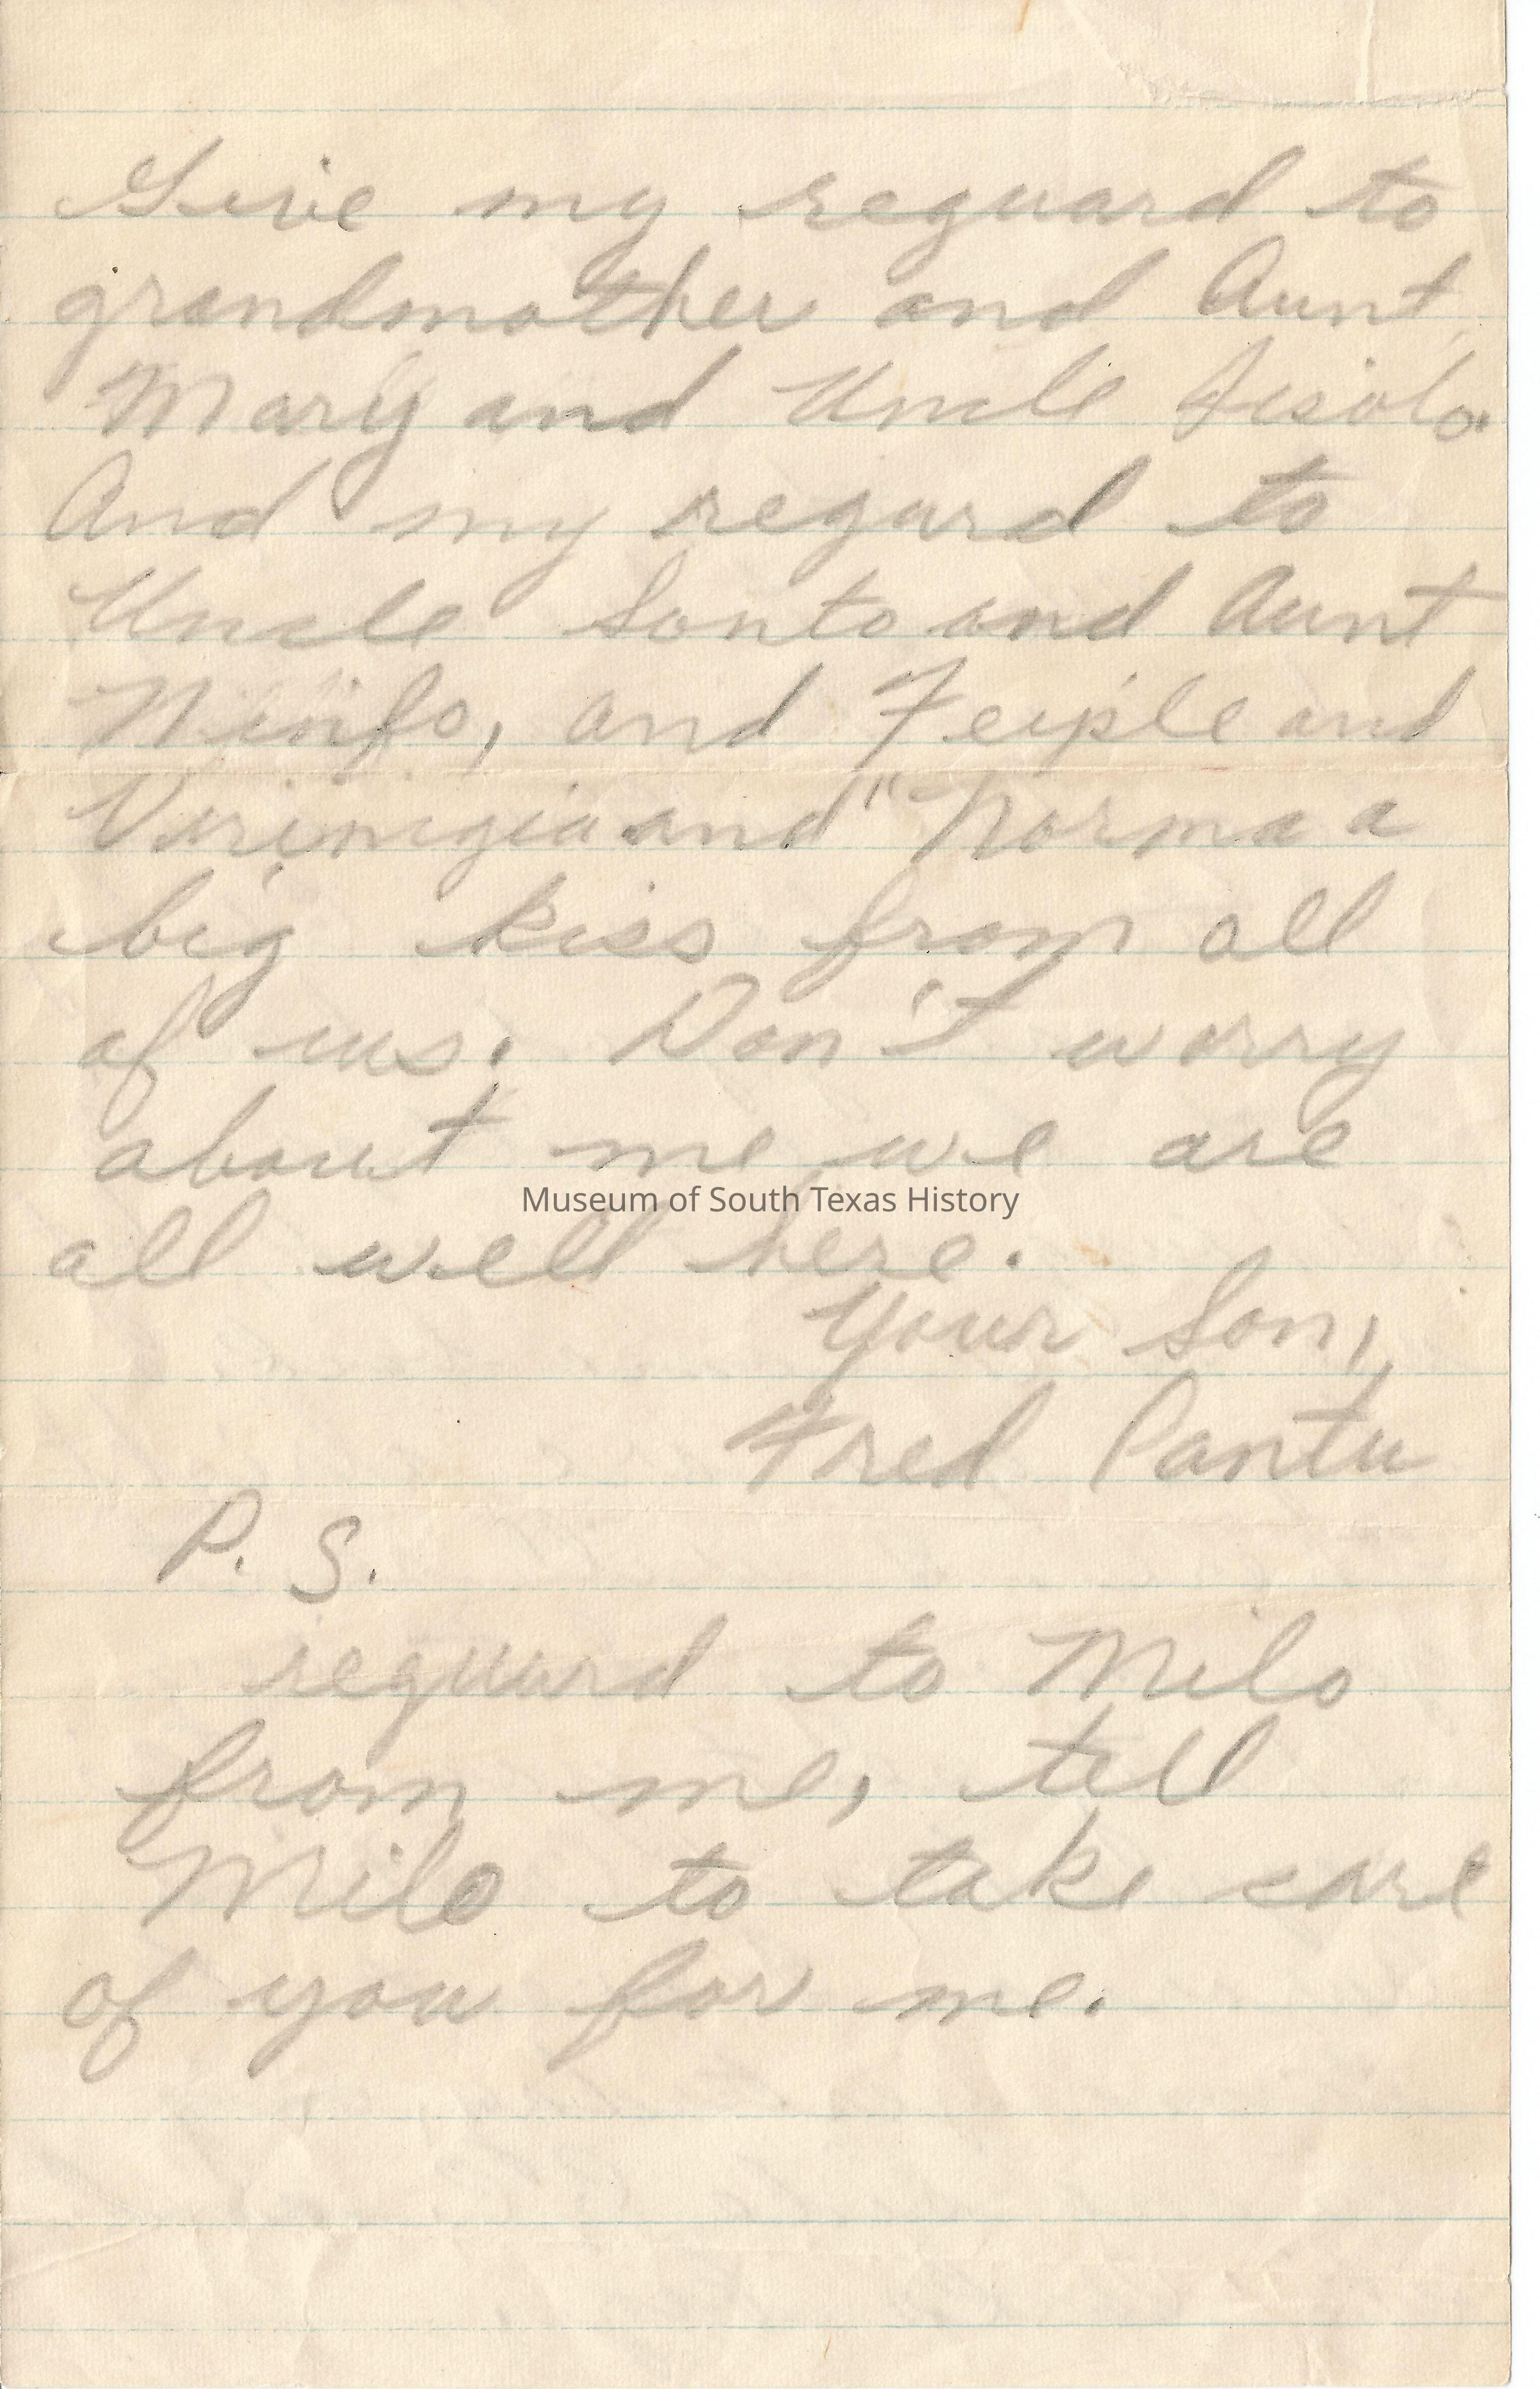 Give my reguard to
grandmother and Aunt
Mary and Uncle
And my regard to
Uncle Santo and Aunt
Ninfa, and Feiple and
and "Norma a
big kiss from all
of us. Don't worry
about me we are
Museum of South Texas History
all well here.
Your Son,
Fred Cantu
P. S.
reguard to Milo
from me, tell
Milo to take care
of you for me.